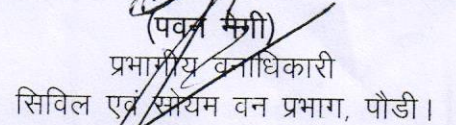 (पवन नेगी)
प्रभागीय वनाधिकारी
सिविल एवं सोयम वन प्रभाग, पौडी।